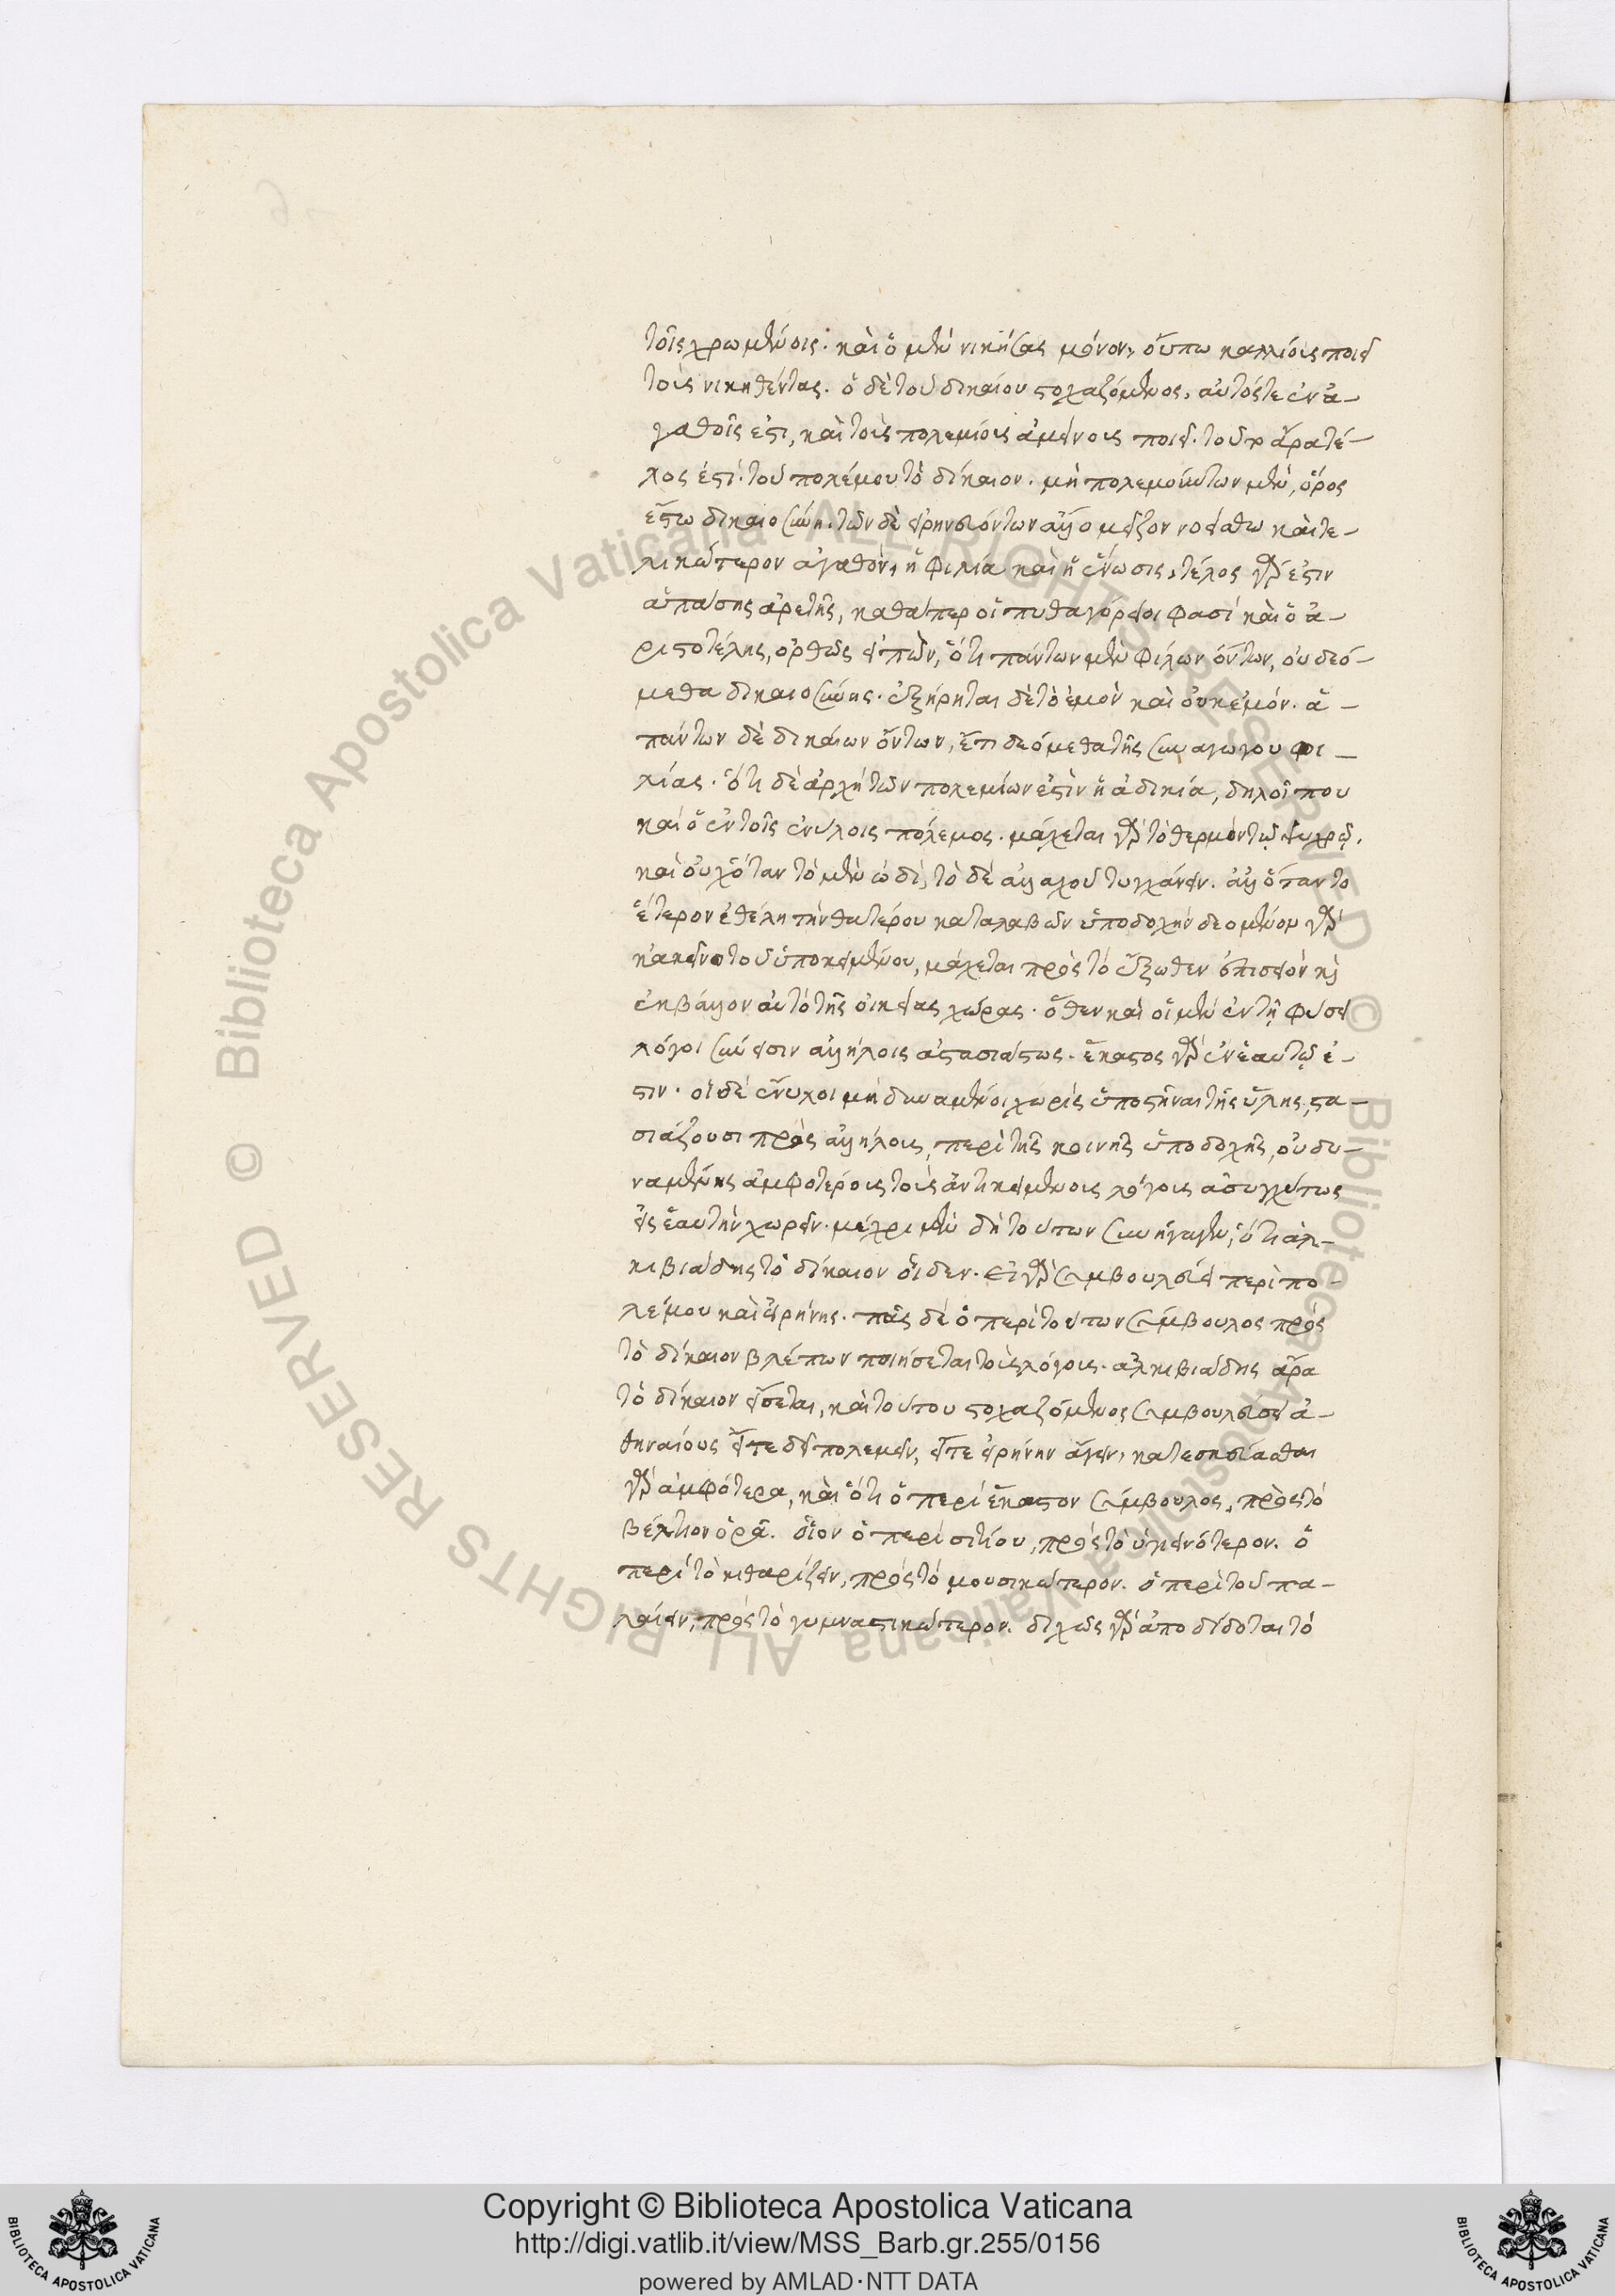 τοῖς χρωμένοις. καὶ ὁ μὲν νικήσας μόνον, οὔπω καλλίους ποιεῖ
τοὺς νικηθέντας. ὁ δὲ τοῦ δικαίου στοχαζόμενος, αὐτός τε ἐν ἀ-
γαθοῖς ἐστι, καὶ τοὺς πολεμίους ἀμείνους ποιεῖ. τοῦτο ἄρα τέ-
λος ἐστὶ τοῦ πολέμου τὸ δίκαιον. μὴ πολεμούντων μὲν, ὅρος
ἔστω δικαιοσύνη. τῶν δὲ εἰρηνευόντων ἄλλο μεῖζον νοείσθω καὶ τε-
λικώτερον ἀγαθὸν, ἡ φιλία καὶ ἡ ἕνωσις, τέλος γάρ ἐστιν
ἁπάσης ἀρετῆς, καθάπερ οἱ πυθαγόρειοι φασὶ καὶ ὁ ἀ-
ριστοτέλης, ὀρθῶς εἰπὼν, ὅτι πάντων μὲν φίλων ὄντων, οὐ δεό-
μεθα δικαιοσύνης. ἐξήρηται δὲ τὸ ἐμὸν καὶ οὐκ ἐμόν. ἁ-
πάντων δὲ δικαίων ὄντων, ἔτι δεόμεθα τῆς συναγωγοῦ φι-
λίας. ὅτι δὲ ἀρχὴ τῶν πολεμίων ἐστὶν ἡ ἀδικία, δηλοῖ που
καὶ ὁ ἐν τοῖς ἐνύλοις πόλεμος. μάχεται γὰρ τὸ θερμὸν τῷ ψυχρῷ.
καὶ οὐχ ὅταν τὸ μὲν ὡδὶ, τὸ δὲ ἀλλαχοῦ τυγχάνειν. ἀλλ' ὅταν το
ἕτερον ἐθέλῃ τὴν θατέρου καταλαβεῖν ὑποδοχήν δεομένου γὰρ
κἀκεῖνο τοῦ ὑποκειμένου, μάχεται πρὸς τὸ ἔξωθεν ἐπεισιὸν καὶ
ἐκβάλλον αὐτὸ τῆς οἰκείας χώρας. ὅθεν καὶ οἱ μὲν ἐν τῇ φύσει
λόγοι σύνεισιν ἀλλήλοις ἀστασιάστως. ἕκαστος γὰρ ἐν ἑαυτῷ ἐ-
στιν. οἱ δὲ ἔνυλοι μὴ δυνάμενοι χωρὶς ὑποστῆναι τῆς ὕλης, στα-
σιάζουσι πρὸς ἀλλήλους, περὶ τῆς κοινῆς ὑποδοχῆς, οὐ δυ-
ναμένης ἀμφοτέρους τοὺς ἀντικειμένους λόγους ἀσυγχύτως
εἰς ἑαυτὴν χωρεῖν. μέχρι μὲν δὴ τούτων συνήγαγεν, ὅτι ἀλ-
κιβιάδης τὸ δίκαιον οἶδεν. εἰ γὰρ συμβουλεύει περὶ πο-
λέμου καὶ εἰρήνης. πᾶς δὲ ὁ περὶ τούτων σύμβουλος πρὸς
τὸ δίκαιον βλέπων ποιήσεται τοὺς λόγους. ἀλκιβιάδης ἄρα
τὸ δίκαιον εἴσεται, καὶ τούτου στοχαζόμενος συμβουλεύσει ἀ-
θηναίους εἴτε δεῖ πολεμεῖν, εἴτε εἰρήνην ἄγειν, κατεσκεύασται
γὰρ ἀμφότερα, καὶ ὅτι ὁ περὶ ἕκαστον σύμβουλος, πρὸς τὸ
βέλτιον ὁρᾷ. οἷον ὁ περὶ σιτίου, πρὸς τὸ ὑγιεινότερον. ὁ
περὶ τὸ κιθαρίζειν, πρὸς τὸ μουσικώτερον. ὁ περὶ τοῦ πα-
λαίειν, πρὸς τὸ γυμναστικώτερον. διχῶς γὰρ ἀποδίδοται τὸ
Copyright © Biblioteca Apostolica Vaticana
http://digi.vatlib.it/view/MSS_Barb.gr.255/0156
powered by AMLAD·NTT DATA